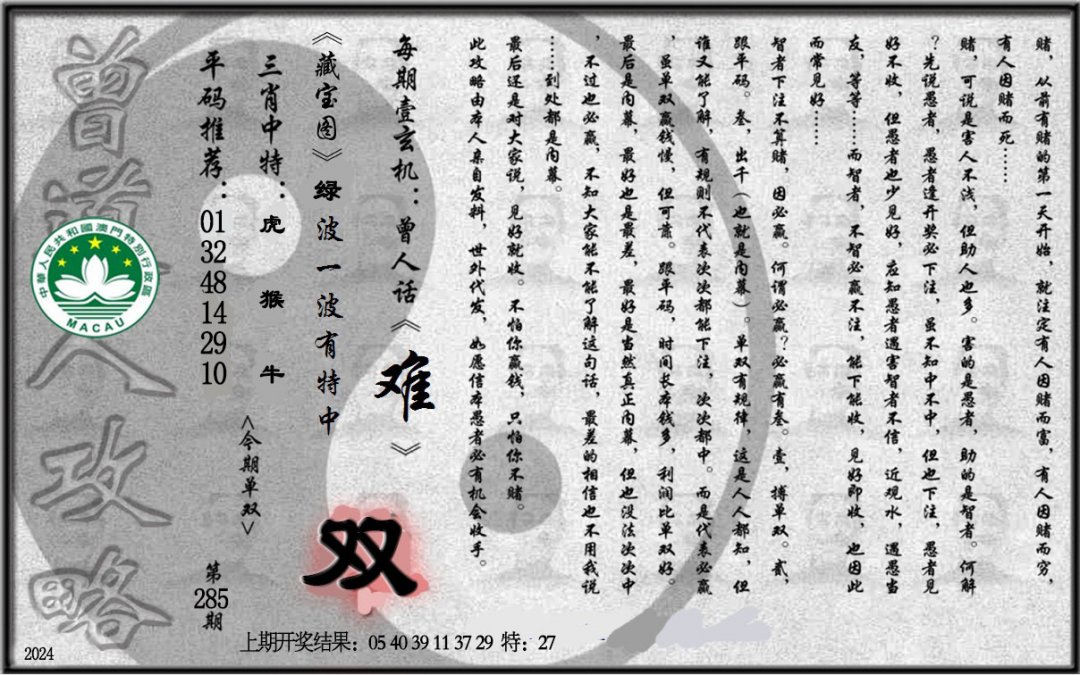 赌，从前有赌的第一天开始，就注定有人因赌而富，有人因赌而穷，
有人因赌而死……
赌，可说是害人不浅，但助人也多。害的是愚者，助的是智者。何解
？先说愚者，愚者逢开奖必下注，虽不知中不中，但也下注，愚者见
好不收，但愚者也少见好，应知愚者遇害智者不信，近观水，遇愚当
友，等等……而智者，不智必赢不注，能下能收，见好即收，也因此
而常见好……
智者下注不算赌，因必赢。何谓必赢？必赢有叁。壹，搏单双。贰，
跟平码。叁，出千（也就是内幕）。单双有规律，这是人人都知，但
谁又能了解，有规则不代表次次都能下注，次次都中。而是代表必赢
，虽单双赢钱慢，但可靠。跟平码，时间长本钱多，利润比单双好。
最后是内幕，最好也是最差，最好是当然真正内幕，但也没法次次中
，不过也必赢，不知大家能不能了解这句话，最差的相信也不用我说
……到处都是内幕。
最后还是对大家说，见好就收。不怕你赢钱，只怕你不赌。
此攻略由本人亲自发料，世外代发，如愿信本愚者必有机会收手。
每期壹玄机：曾人话《难》
《藏宝图》绿波一波有特中
双
三肖中特：虎 猴 牛
<今期单双>
平码推荐：01 32 48 14 29 10
第285期
曾道人攻略
中華人民共和國澳門特別行政區
MACAU
上期开奖结果：05 40 39 11 37 29 特：27
2024